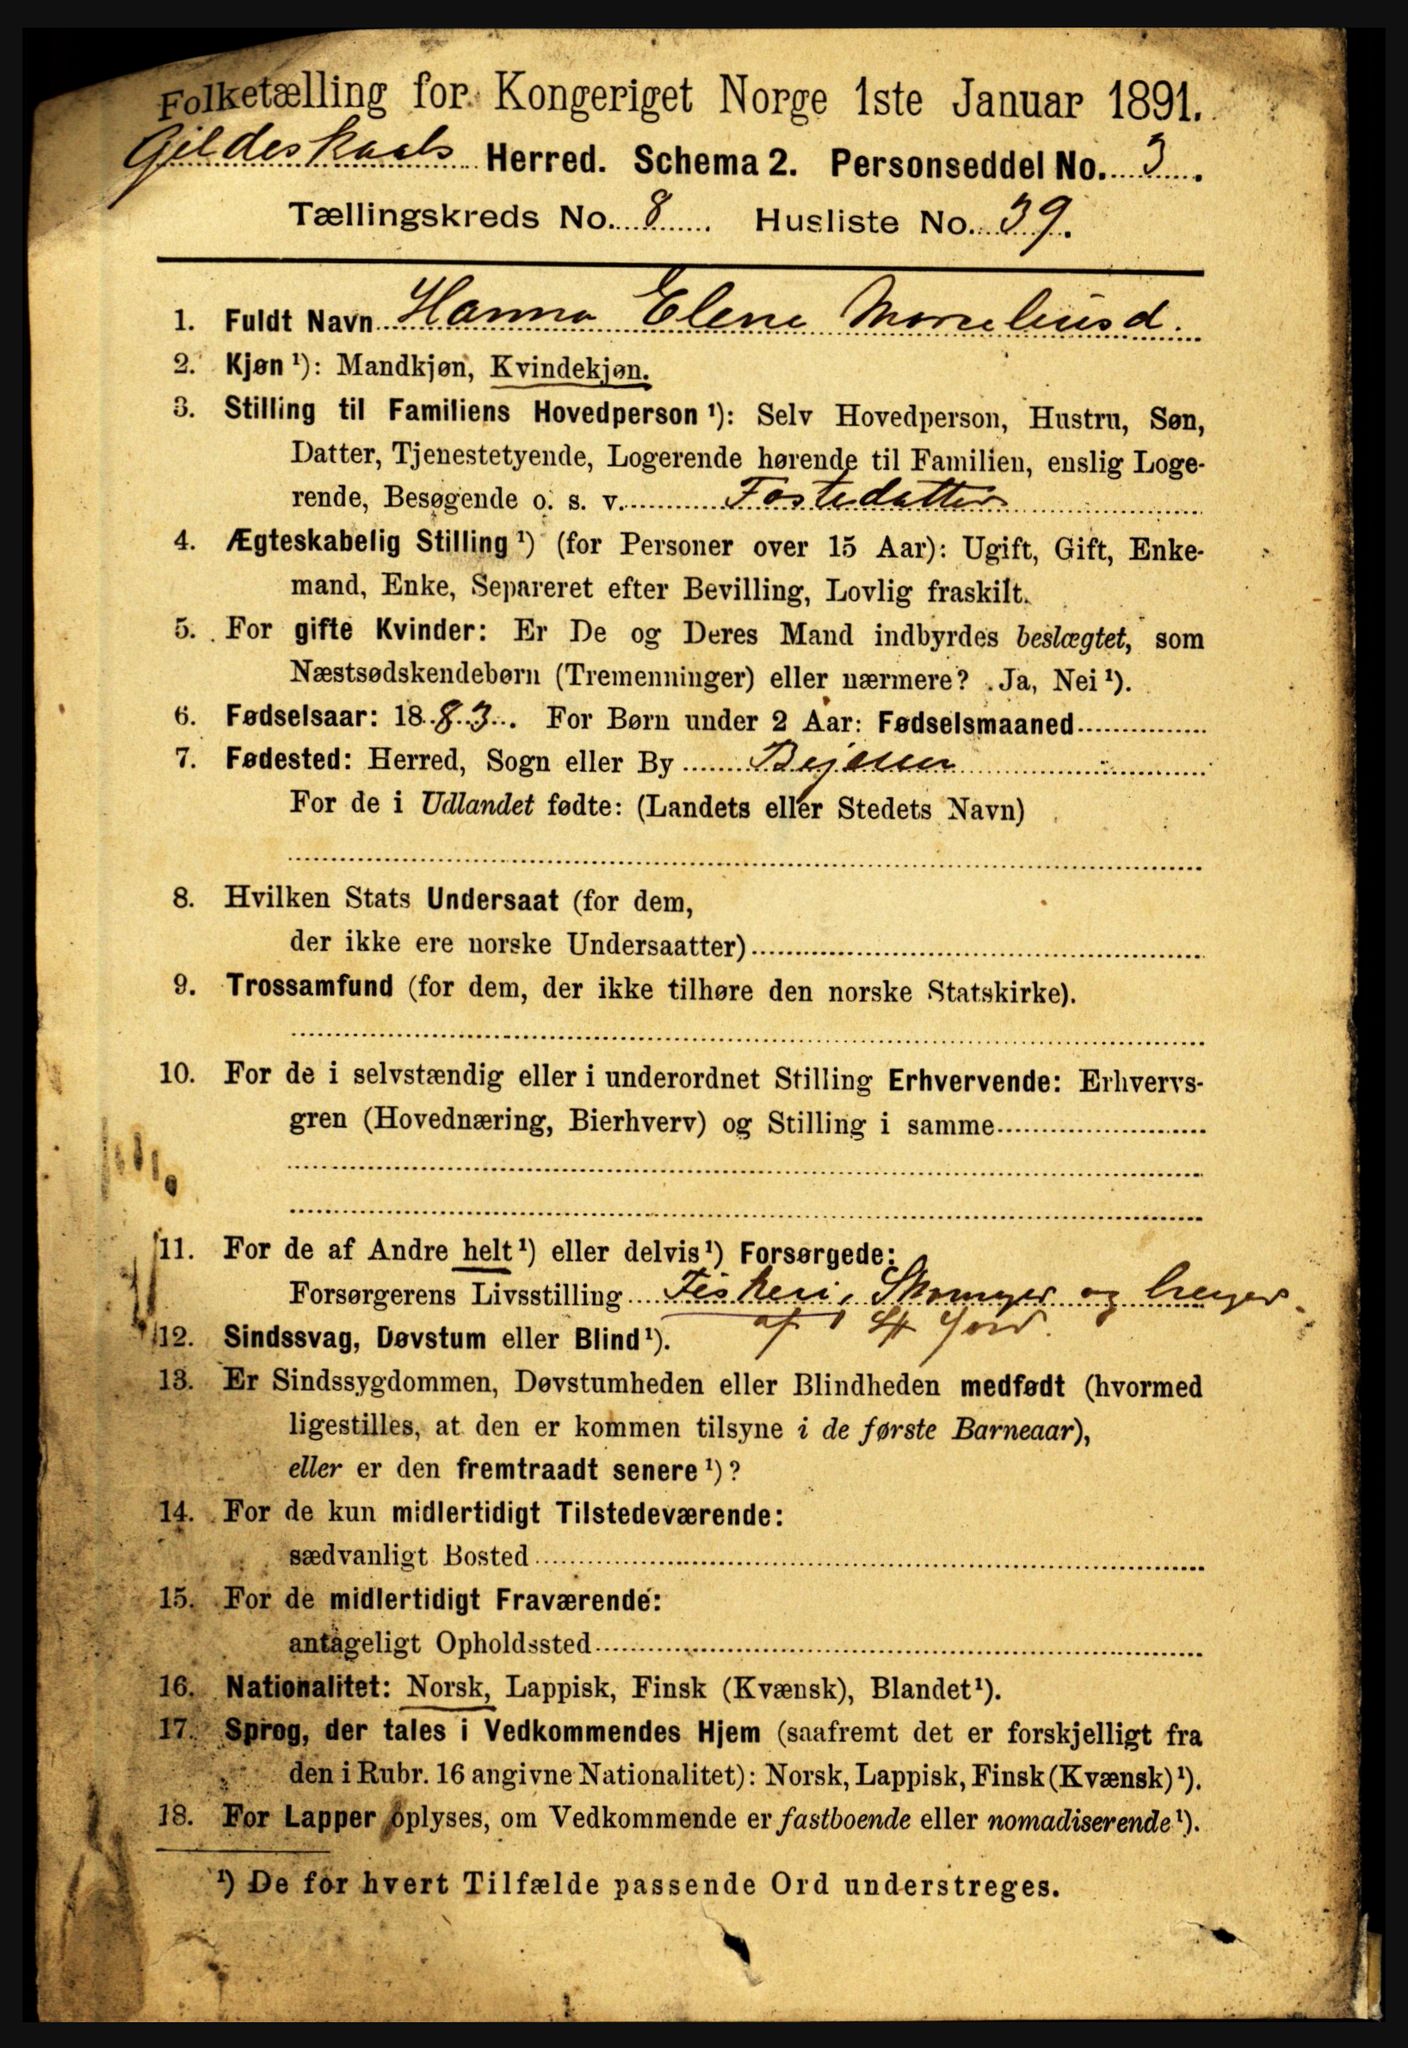 Folketælling for Kongeriget Norge 1ste Januar 1891.
Gildeskaals Herred. Schema 2. Personseddel No. 3.
Tællingskreds No. 8. Husliste No. 39.
1. Fuldt Navn Hanna Elene
2. Kjøn ¹): Mandkjøn, Kvindekjøn.
3. Stilling til Familiens Hovedperson ¹): Selv Hovedperson, Hustru, Søn,
Datter, Tjenestetyende, Logerende hørende til Familien, enslig Loge-
rende, Besøgende o. s. v. Fostedatter
4. Ægteskabelig Stilling ¹) (for Personer over 15 Aar): Ugift, Gift, Enke-
mand, Enke, Separeret efter Bevilling, Lovlig fraskilt.
5. For gifte Kvinder: Er De og Deres Mand indbyrdes beslægtet, som
Næstsødskendebørn (Tremenninger) eller nærmere? Ja, Nei ¹).
6. Fødselsaar: 1883. For Børn under 2 Aar: Fødselsmaaned
7. Fødested: Herred, Sogn eller By Bejeren
For de i Udlandet fødte: (Landets eller Stedets Navn)
8. Hvilken Stats Undersaat (for dem,
der ikke ere norske Undersaatter)
9. Trossamfund (for dem, der ikke tilhøre den norske Statskirke).
10. For de i selvstændig eller i underordnet Stilling Erhvervende: Erhvervs-
gren (Hovednæring, Bierhverv) og Stilling i samme
11. For de af Andre helt ¹) eller delvis ¹) Forsørgede:
Forsørgerens Livsstilling Fiskeri, og
af jord.
12. Sindssvag, Døvstum eller Blind ¹).
13. Er Sindssygdommen, Døvstumheden eller Blindheden medfødt (hvormed
ligestilles, at den er kommen tilsyne i de første Barneaar),
eller er den fremtraadt senere ¹)?
14. For de kun midlertidigt Tilstedeværende:
sædvanligt Bosted
15. For de midlertidigt Fraværende:
antageligt Opholdssted
16. Nationalitet: Norsk, Lappisk, Finsk (Kvænsk), Blandet ¹).
17. Sprog, der tales i Vedkommendes Hjem (saafremt det er forskjelligt fra
den i Rubr. 16 angivne Nationalitet): Norsk, Lappisk, Finsk (Kvænsk) ¹).
18. For Lapper oplyses, om Vedkommende er fastboende eller nomadiserende ¹).
¹) De for hvert Tilfælde passende Ord understreges.